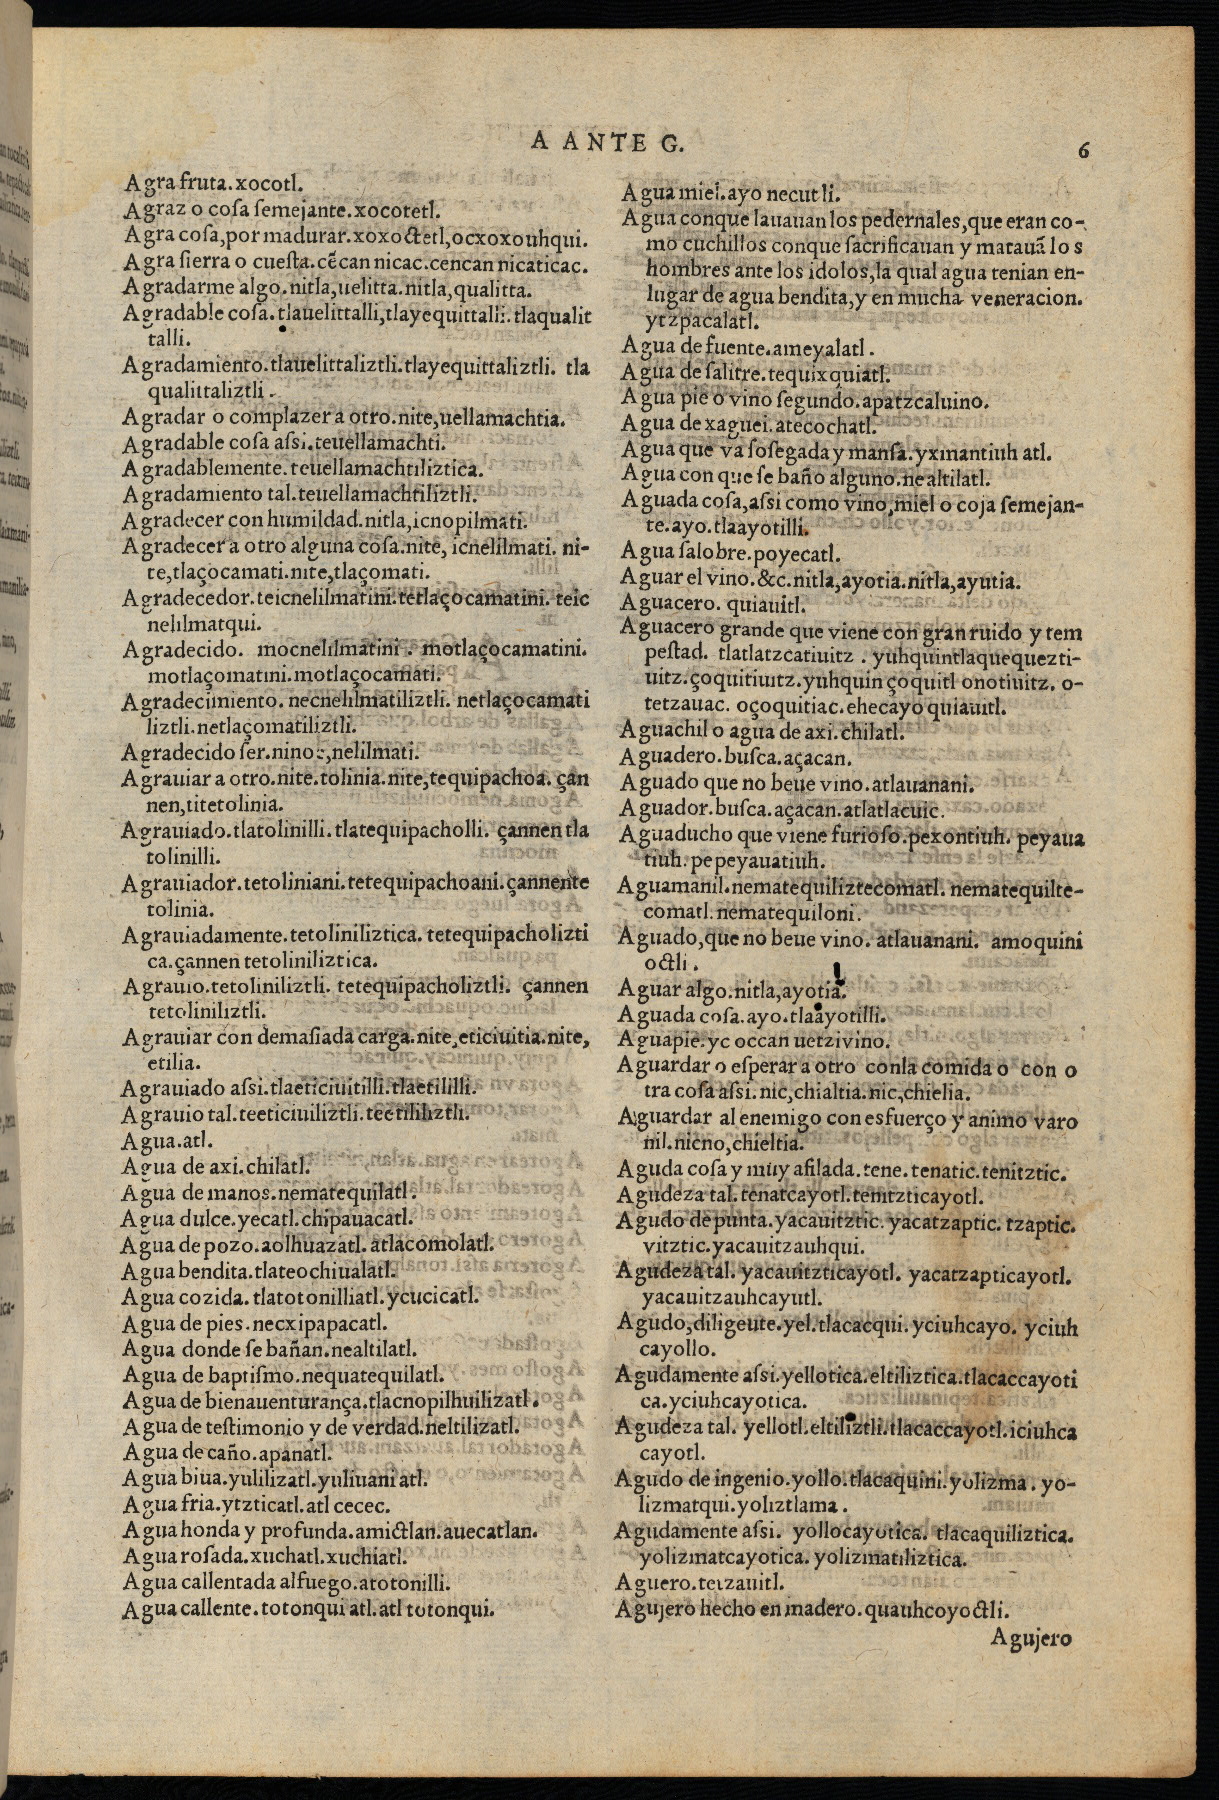 A ANTE G.
6
Agra fruta.xocotl.
Agraz o cosa semejante.xocotetl.
Agra cosa,por madurar.xoxoctetl,ocxoxouhqui.
Agra sierra o cuesta.cẽcan nicac.cencan nicaticac.
Agradarme algo.nitla,uelitta.nitla,qualitta.
Agradable cosa.tlauelittalli,tlayequittalli.tlaqualit
talli.
Agradamiento.tlauelittaliztli.tlayequittaliztli. tla
qualittaliztli.
Agradar o complazer a otro.nite,uellamachtia.
Agradable cosa assi.teuellamachti.
Agradablemente.teuellamachtiliztica.
Agradamiento tal.teuellamachtiliztli.
Agradecer con humildad.nitla,icnopilmati.
Agradecer a otro alguna cosa.nite, icnelilmati. ni-
te,tlaçocamati.nite,tlaçomati.
Agradecedor.teicnelilmatini.tetlaçocamatini. teic
nelilmatqui.
Agradecido. mocnelilmatini. motlaçocamatini.
motlaçomatini.motlaçocamati.
Agradecimiento. necnelilmatiliztli. netlaçocamati
liztli.netlaçomatiliztli.
Agradecido ser.ninoc,nelilmati.
Agrauiar a otro.nite.tolinia.nite,tequipachoa. çan
nen,titetolinia.
Agrauiado.tlatolinilli.tlatequipacholli. çannen tla
tolinilli.
Agrauiador.tetoliniani.tetequipachoani.çannente
tolinia.
Agrauiadamente.tetoliniliztica. tetequipacholizti
ca.çannen tetoliniliztica.
Agrauio.tetoliniliztli. tetequipacholiztli. çannen
tetoliniliztli.
Agrauiar con demasiada carga.nite,eticiuitia.nite,
etilia.
Agrauiado assi.tlaeticiuitilli.tlaetililli.
Agrauio tal.teeticiuiliztli.teetililiztli.
Agua.atl.
Agua de axi.chilatl.
Agua de manos.nematequilatl.
Agua dulce.yecatl.chipauacatl.
Agua de pozo.aolhuazatl.atlacomolatl.
Agua bendita.tlateochiualatl.
Agua cozida.tlatotonilliatl.ycucicatl.
Agua de pies.necxipapacatl.
Agua donde se bañan.nealtilatl.
Agua de baptismo.nequatequilatl.
Agua de bienauenturança.tlacnopilhuilizatl.
Agua de testimonio y de verdad.neltilizatl.
Agua de caño.apanatl.
Agua biua.yulilizatl.yuliuani atl.
Agua fria.ytzticatl.atl cecec.
Agua honda y profunda.amictlan.auecatlan.
Agua rosada.xuchatl.xuchiatl.
Agua callentada alfuego.atotonilli.
Agua callente.totonqui atl.atl totonqui.
Agua miel.ayo necutli.
Agua conque lauauan los pedernales,que eran co-
mo cuchillos conque sacrificauan y matauã los
hombres ante los idolos,la qual agua tenian en-
lugar de agua bendita,y en mucha veneracion.
ytzpacalatl.
Agua de fuente.ameyalatl.
Agua de salitre.tequixquiatl.
Agua pie o vino segundo.apatzcaluino.
Agua de xaguei.atecochatl.
Agua que va sosegada y mansa.yxmantiuh atl.
Agua con que se baño alguno.nealtilatl.
Aguada cosa,assi como vino,miel o coja semejan-
te.ayo.tlaayotilli.
Agua salobre.poyecatl.
Aguar el vino.&c.nitla,ayotia.nitla,ayutia.
Aguacero. quiauitl.
Aguacero grande que viene con gran ruido y tem
pestad. tlatlatzcatiuitz. yuhquintlaquequezti-
uitz.çoquitiuitz.yuhquin çoquitl onotiuitz. o-
tetzauac. oçoquitiac.ehecayo quiauitl.
Aguachil o agua de axi.chilatl.
Aguadero.busca.açacan.
Aguado que no beue vino.atlauanani.
Aguador.busca.açacan.atlatlacuic.
Aguaducho que viene furioso.pexontiuh. peyaua
tiuh.pepeyauatiuh.
Aguamanil.nematequiliztecomatl. nematequilte-
comatl.nematequiloni.
Aguado,que no beue vino. atlauanani. amoquini
octli.
Aguar algo.nitla,ayotia.
Aguada cosa.ayo.tlaayotilli.
Aguapie.yc occan uetzivino.
Aguardar o esperar a otro conla comida o con o
tra cosa assi.nic,chialtia.nic,chielia.
Aguardar al enemigo con esfuerço y animo varo
nil.nicno,chieltia.
Aguda cosa y muy afilada.tene.tenatic.tenitztic.
Agudeza tal.tenatcayotl.tenitzticayotl.
Agudo de punta.yacauitztic. yacatzaptic. tzaptic.
vitztic.yacauitzauhqui.
Agudeza tal. yacauitzticayotl. yacatzapticayotl.
yacauitzauhcayutl.
Agudo,diligente.yel.tlacacqui.yciuhcayo. yciuh
cayollo.
Agudamente assi.yellotica.eltiliztica.tlacaccayoti
ca.yciuhcayotica.
Agudeza tal. yellotl.eltiliztli.tlacaccayotl.iciuhca
cayotl.
Agudo de ingenio.yollo.tlacaquini.yolizma. yo-
lizmatqui.yoliztlama.
Agudamente assi. yollocayotica. tlacaquiliztica.
yolizmatcayotica. yolizmatiliztica.
Aguero.tetzauitl.
Agujero hecho en madero.quauhcoyoctli.
Agujero